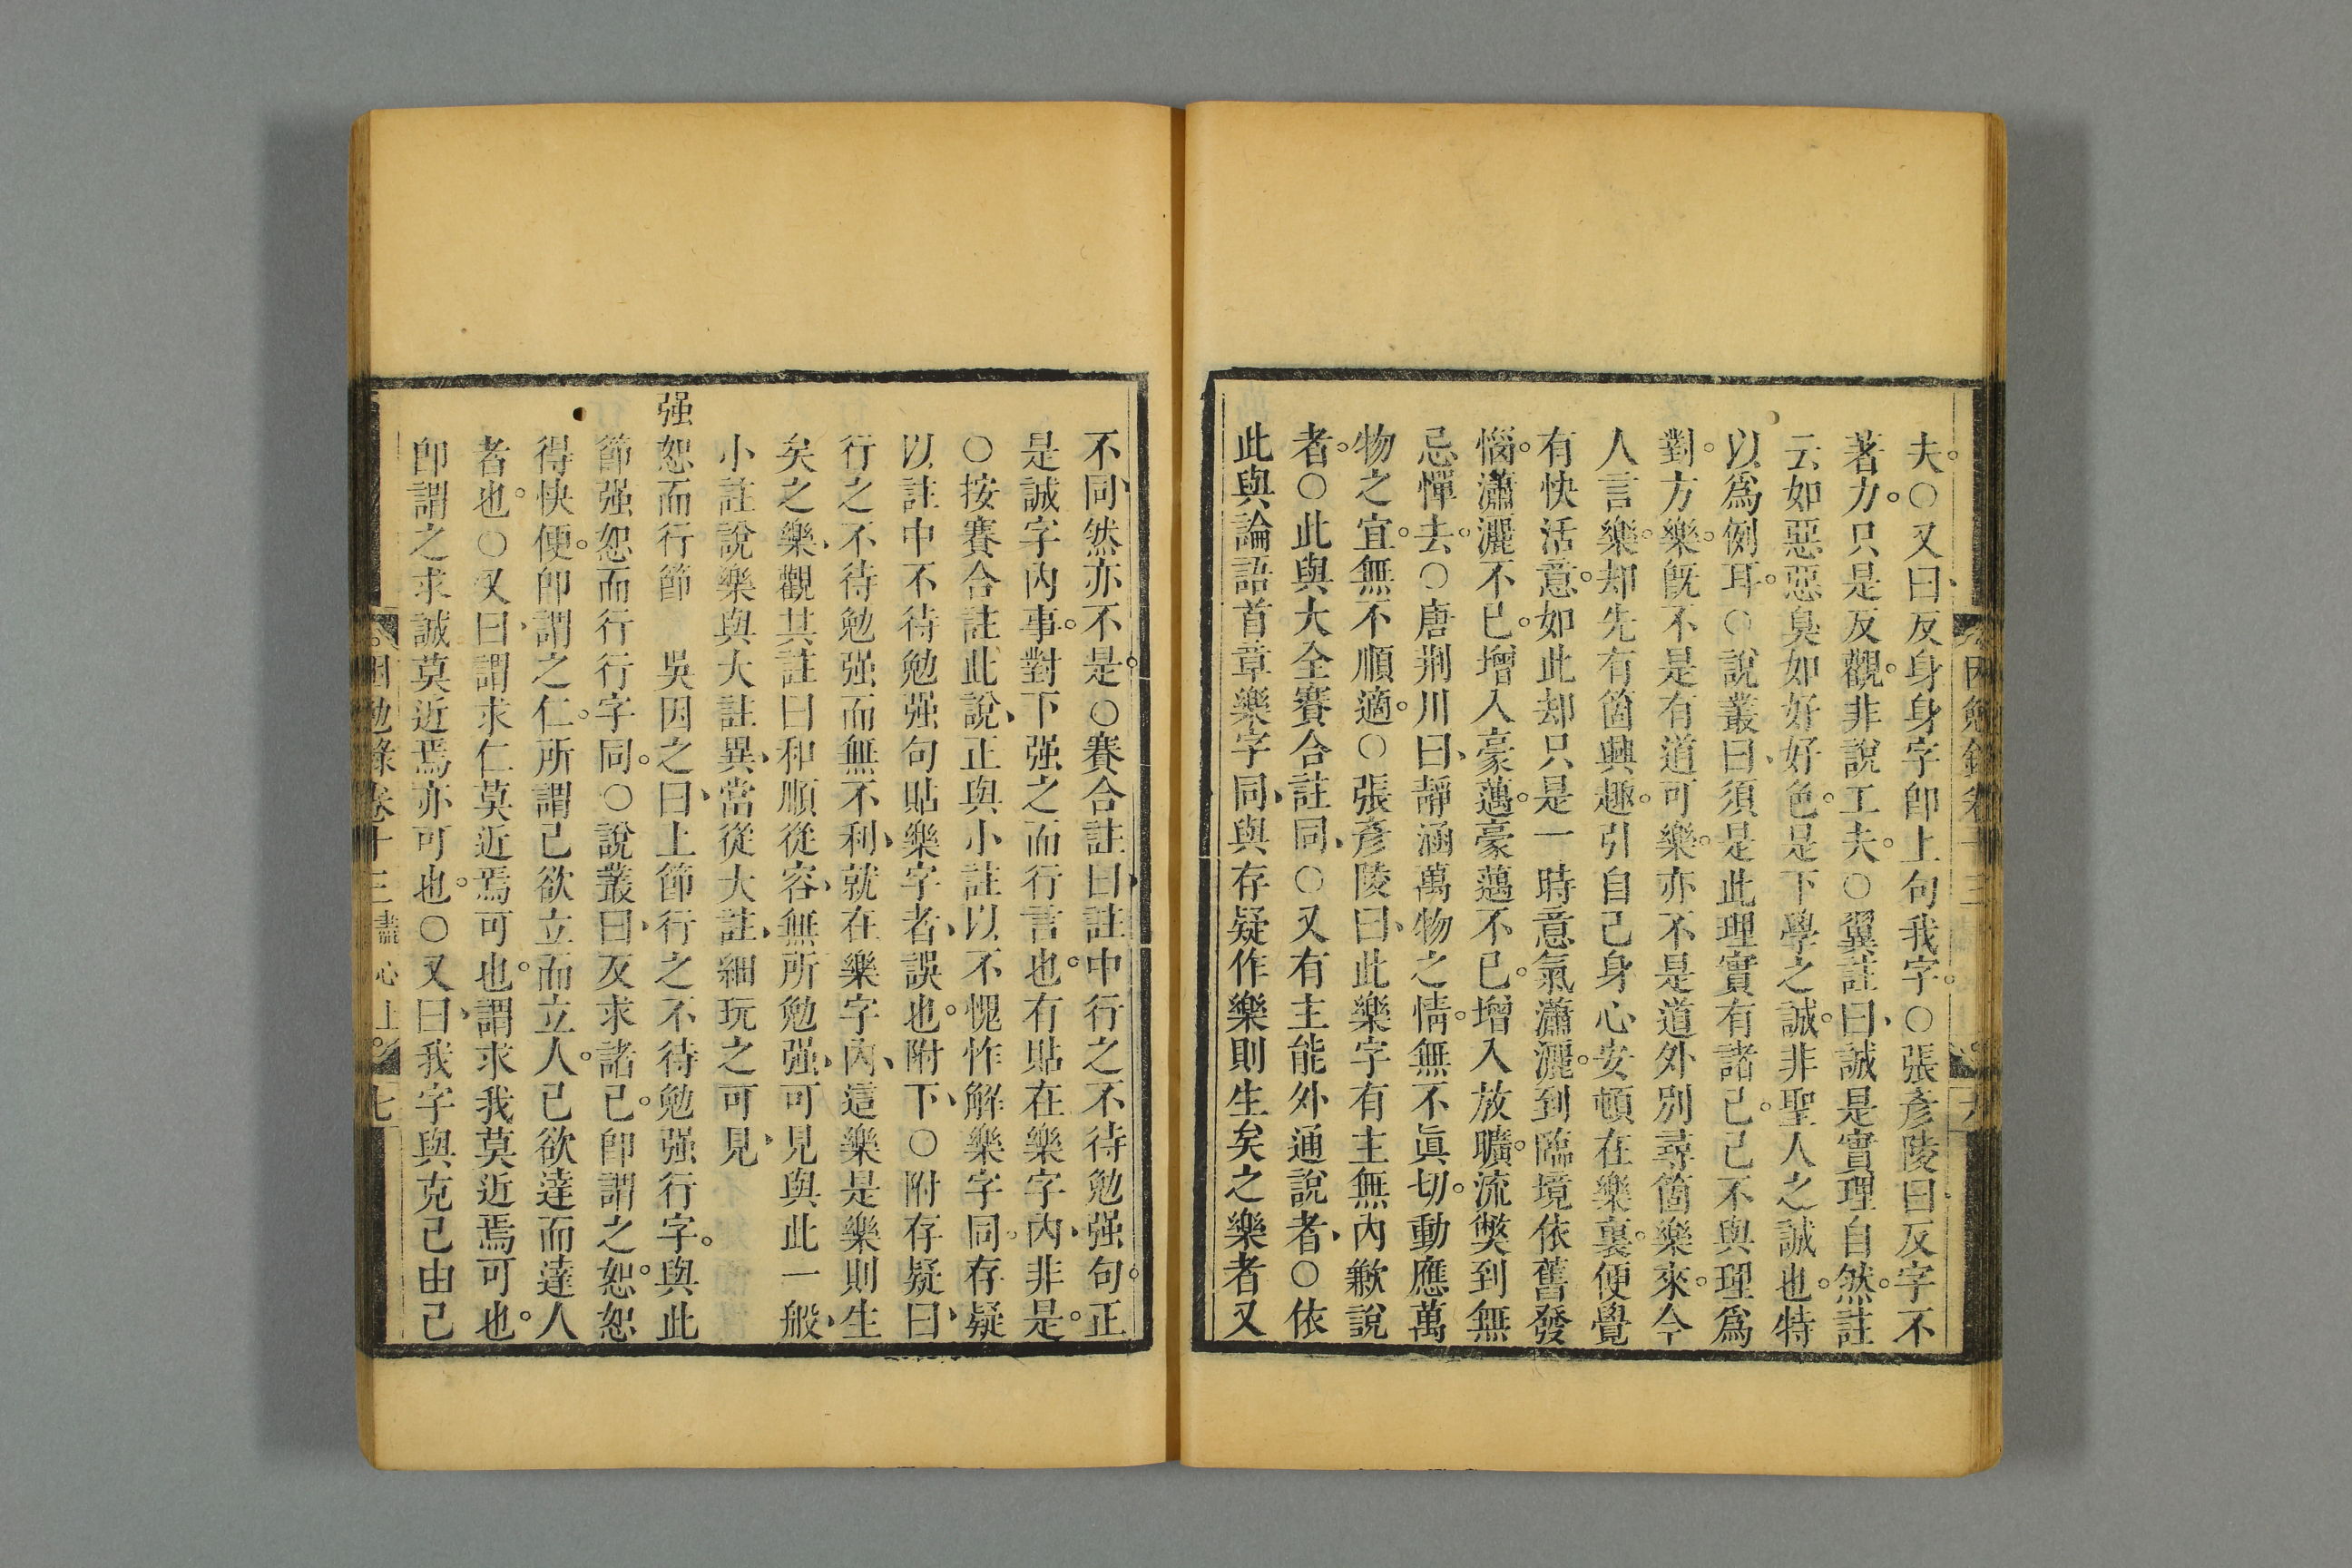 夫。○又曰、反身身字卽上句我字。○張彥陵曰、反字不
著力。只是反觀。非說工夫。○翼註曰、誠是實理自然。註
云如惡惡臭如好好色。是下學之誠。非聖人之誠也。特
以爲例耳。○說叢曰、須是此理實有諸己。己不與理爲
對。方樂。旣不是有道可樂。亦不是道外別尋箇樂來。今
人言樂。却先有箇興趣。引自己身心安頓在樂裏。便覺
有快活意。如此却只是一時意氣瀟灑。到臨境依舊發
惱。瀟灑不已。增入豪邁。豪邁不已。增入放曠。流獘到無
忌憚去。○唐荆川曰、靜涵萬物之情。無不眞切。動應萬
物之宜。無不順適。○張彥陵曰、此樂字有主無內歉說
者。○此與大全賽合註同、○又有主能外通說者、○依
此與論語首章樂字同、與存疑作樂則生矣之樂者又
不同、然亦不是。○賽合註曰、註中行之不待勉强句。正
是誠字內事。對下强之而行言也。有貼在樂字內、非是。
○按賽合註此說、正與小註以不愧怍解樂字同。存疑
以註中不待勉强句貼樂字者、誤也。附下、○附存疑曰、
行之不待勉强而無不利、就在樂字內、這樂是樂則生
矣之樂、觀其註曰和順從容、無所勉强、可見與此一般、
小註說樂與大註異、當從大註、細玩之可見、
强恕而行節　吳因之曰、上節行之不待勉强行字。與此
節强恕而行行字同。○說叢曰、反求諸己。卽謂之恕。恕
得快便。卽謂之仁。所謂己欲立而立人。己欲達而達人
者也。○又曰、謂求仁莫近焉可也。謂求我莫近焉可也。
卽謂之求誠莫近焉亦可也。○又曰、我字與克己由己
困勉錄卷十三 盡心上 七